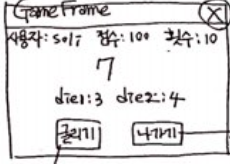 GameFrame X
사용자: soli 점수: 100 횟수: 10
7
die1: 3 die2: 4
굴리기 나가기